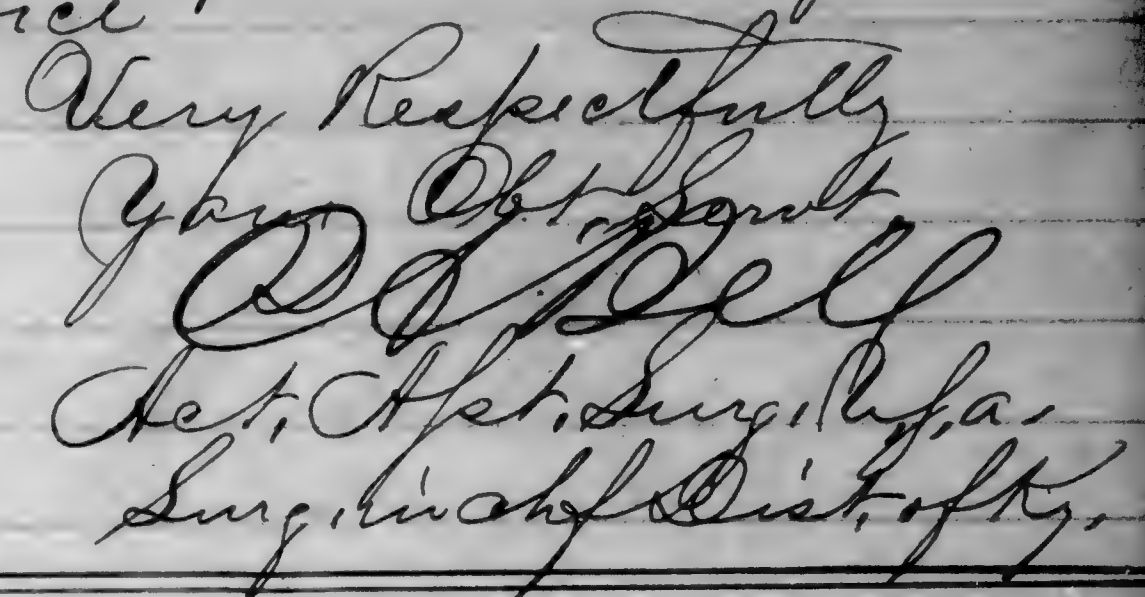 Very Respectfully
Your Obt. Servt.
Bell
Act, Asst. Surg. U.S.a.
Surg. in chf Dist. of Ky.